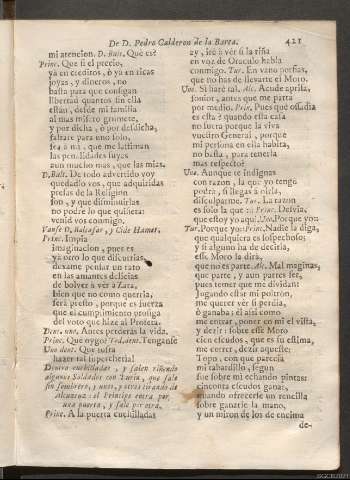 De D. Pedro Calderon de la Barca. 421
mi atencion. D. Balt. Què es?
Princ. Que si el precio,
yà en creditos, ò yà en ricas
joyas, y dineros, no
basta para que consigan
libertad quantos sin ella
estàn, desde mi familia
al mas misero grumete,
y por dicha, ò por desdicha,
faltare para uno solo,
sea à mi, que me lastiman
las penalidades suyas
aun mucho mas, que las mias.
D. Balt. De todo advertido voy
quedadlo vos, que adquiridas
presas de la Religion
son, y que disminuirlas
no podrè lo que quisiera:
venid vos conmigo.
Vanse D. Baltasar, y Cide Hamet.
Princ. Impia
imaginacion, pues es
yà otro lo que discurrias,
dexame pensar un rato
en las amantes delicias
de bolver à vèr à Zara,
bien que no como querria,
serà presto, porque es fuerza
que el cumplimiento prosiga
del voto que hize al Profeta.
Dent. uno. Antes perderàs la vida.
Princ. Que oygo? Tod. dent. Tenganse
Uno dent. Que justa
hazer tal supercheria!
Dentro cuchilladas, y salen riñendo
algunos Soldados con Turin, que sale
sin sombrero, y unos, y otros tirando de
Alcuzcuz: el Principe entra por
una puerta, y sale por otra.
Princ. A la puerta cuchilladas
ay, irè à vèr si la riña
en voz de Oraculo habla
conmigo. Tur. En vano porfias,
que no has de llevarte el Moro.
Uno. Si harè tal. Alc. Acude aprisa,
sonior, antes que me parta
por medio. Prin. Pues què ossadia
es esta? quando esta casa
no fuera porque la viva
vuestro General, porque
mi persona en ella habita,
no basta, para tenerla
mas respeto?
Uno. Aunque te indignas
con razon, la que yo tengo
podrà, si llegas à oirla,
disculparme. Tur. La razon
es solo la que :: Princ. Desvia,
que estoy yo aqui. Uno. Porque yo::
Tur. Porque yo:: Princ. Nadie la diga,
que qualquiera es sospechoso;
y si alguno ha de decirla,
esse Moro la dirà,
que no es parte. Alc. Mal maginas,
que parte, y aun partes ser,
pues temer que me dividan:
Jugando estar mi poltròn,
me querer vèr si perdia,
ò ganaba: el assi como
me entrar, poner en mì el vista,
y dezir: sobre esse Moro
cien escudos, que es su estima,
me correr, dezir aqueste:
Topo, con que parecia
mi rabardillo, segun
fue sobre mì echando pintas:
cincuenta escudos ganar,
quando ofrecerse un rencilla
sobre ganarle la mano,
y un miron de los de encima
de-